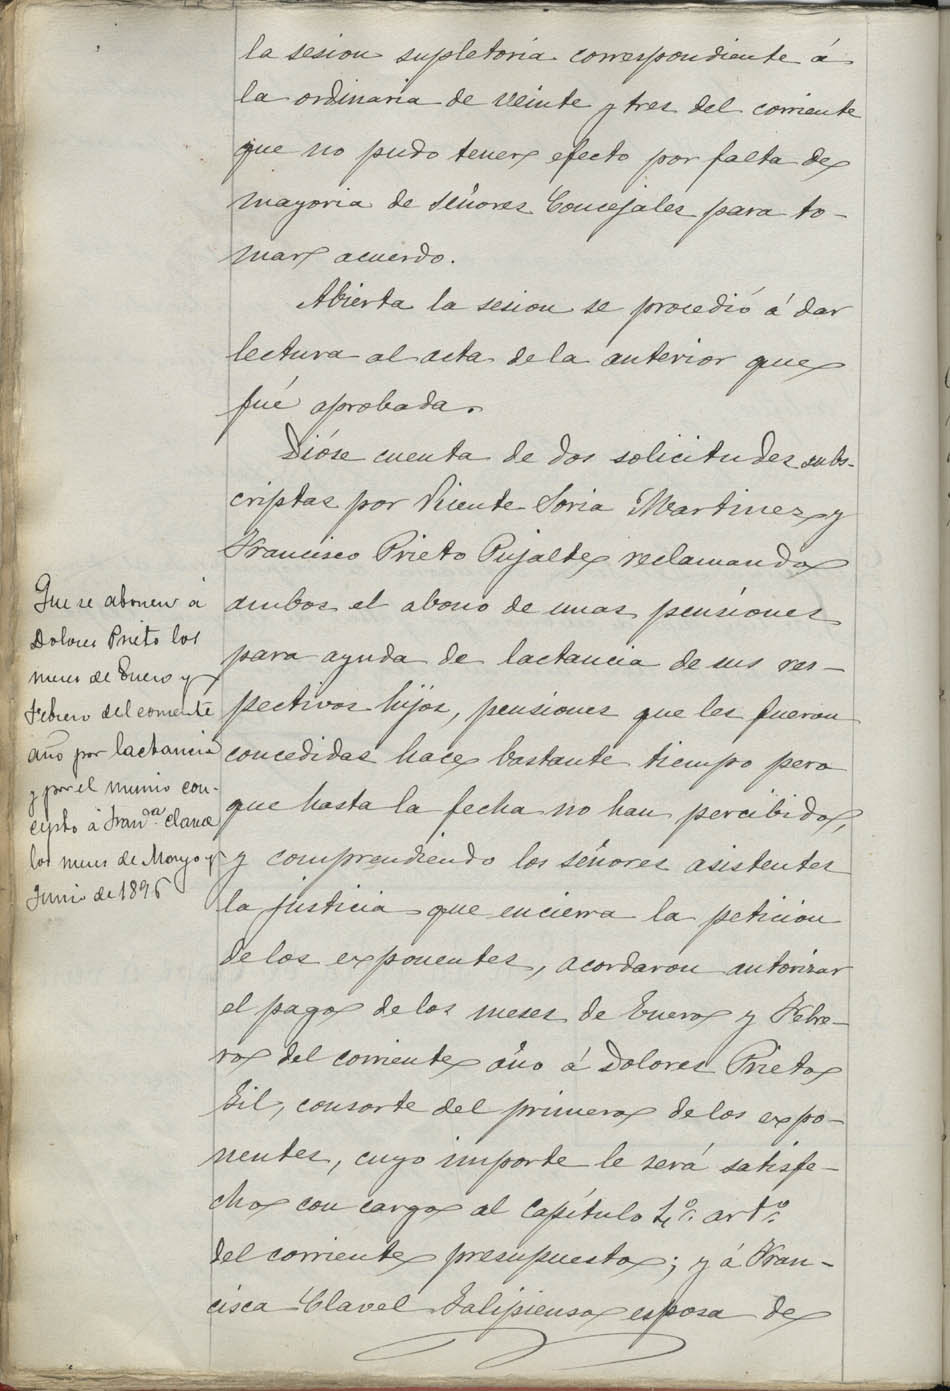 la sesion supletoria correspondiente á
la ordinaria de veinte y tres del corriente
que no pudo tener efecto por falta de
mayoria de señores Concejales para to-
mar acuerdo.
Abierta la sesion se procedió á dar
lectura al acta de la anterior que
fué aprobada.
Dióse cuenta de dos solicitudes subs-
criptas por Vicente Soria Martinez y
Francisco Prieto Pujalte reclamando
ambos el abono de unas pensiones
para ayuda de lactancia de sus res-
pectivos hijos, pensiones que les fueron
concedidas hace bastante tiempo pero
que hasta la fecha no han percibido,
y comprendiendo los señores asistentes
la justicia que encierra la peticion
de los exponentes, acordaron autorizar
el pago de los meses de Enero y Febre-
ro del corriente año á Dolores Prieto
Gil, consorte del primero de los expo-
nentes, cuyo importe le será satisfe-
cho con cargo al capítulo art.º
del corriente presupuesto; y á Fran-
cisca Clavel esposa de
Que se abonen á
Dolores Prieto los
meses de Enero y
Febrero del corriente
año por lactancia
y por el mismo con-
cepto á Fran.ca Clavel
los meses de Mayo y
Junio de 1896